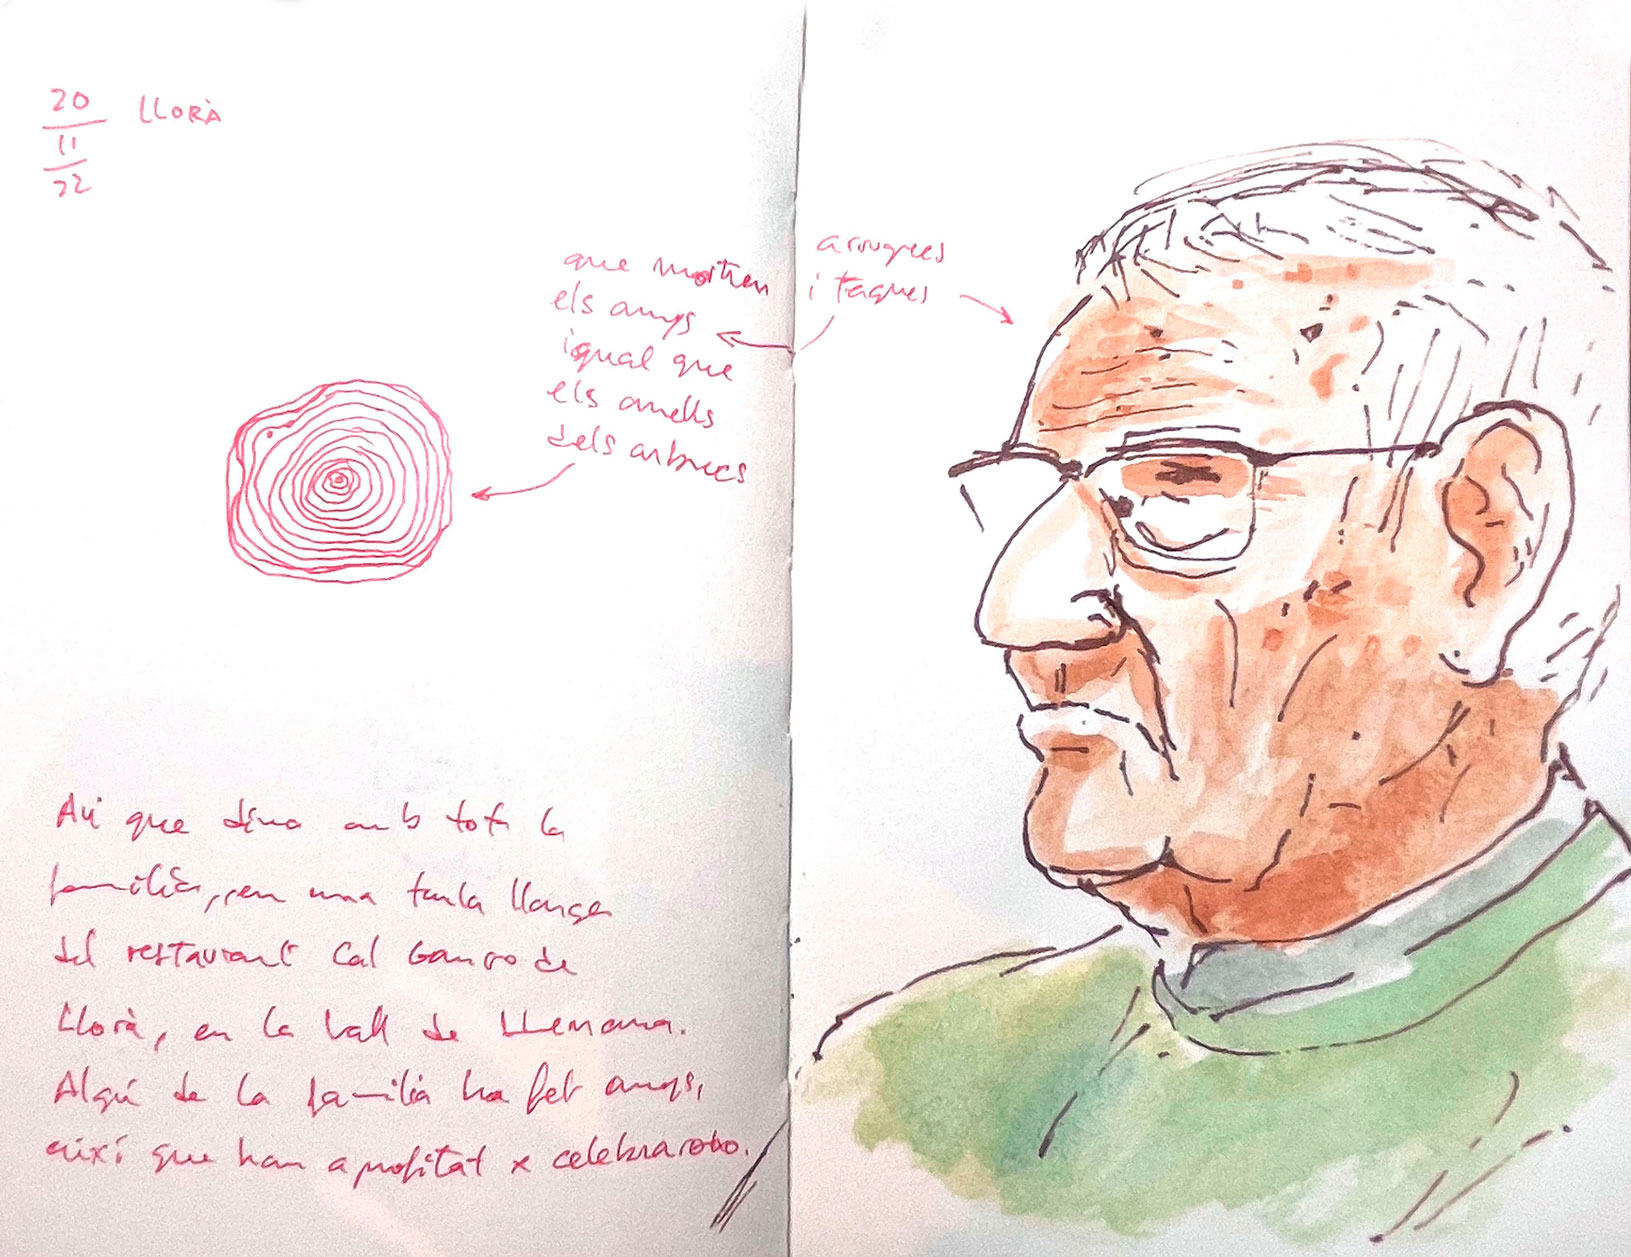 20
11
22
LLORÀ
arrugues
i taques
que mostren
els anys
igual que
els anells
dels arbres
Avi que dina amb tota la
família, en una taula llarga
del restaurant Cal de
Llorà, en la Vall de LLémana.
Algú de la família ha fet anys,
així que han aprofitat x